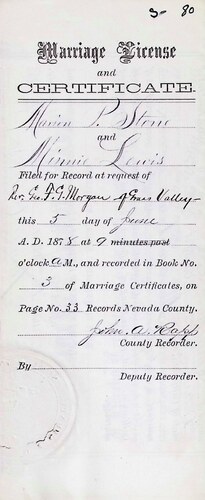 3- 80
Marriage License
and
CERTIFICATE.
Marion P. Stone
and
Minnie Lewis
Filed for Record at request of
Rev. Geo. F. G. Morgan of Grass Valley
this 5 day of June
A. D. 1878 at 9 minutes past
o'clock A M., and recorded in Book No.
3 of Marriage Certificates, on
Page No. 33 Records Nevada County.
John A. Rapp
County Recorder.
By
Deputy Recorder.